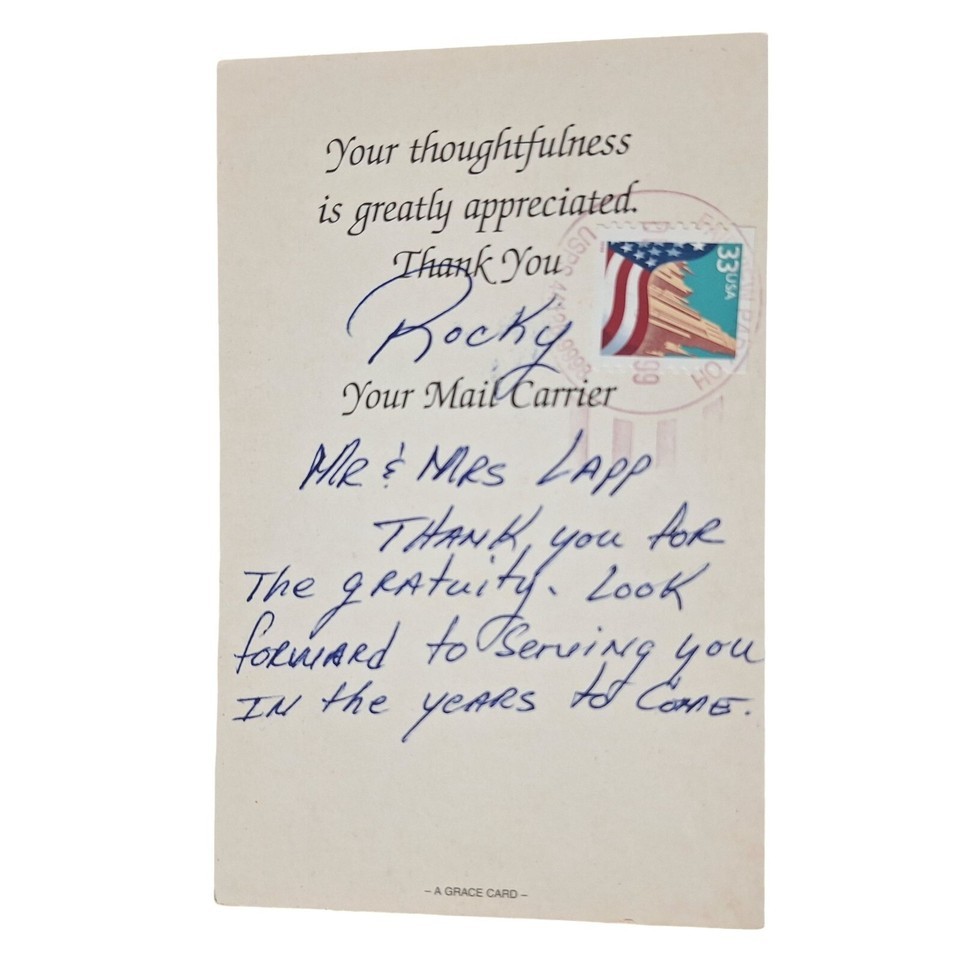 Your thoughtfulness
is greatly appreciated.
Thank You
Rocky
Your Mail Carrier
33USA
USPS
OH
99
MR & MRS LAPP
THANK you for
The gratuity. Look
forward to Serving you
IN the years to Come.
– A GRACE CARD –